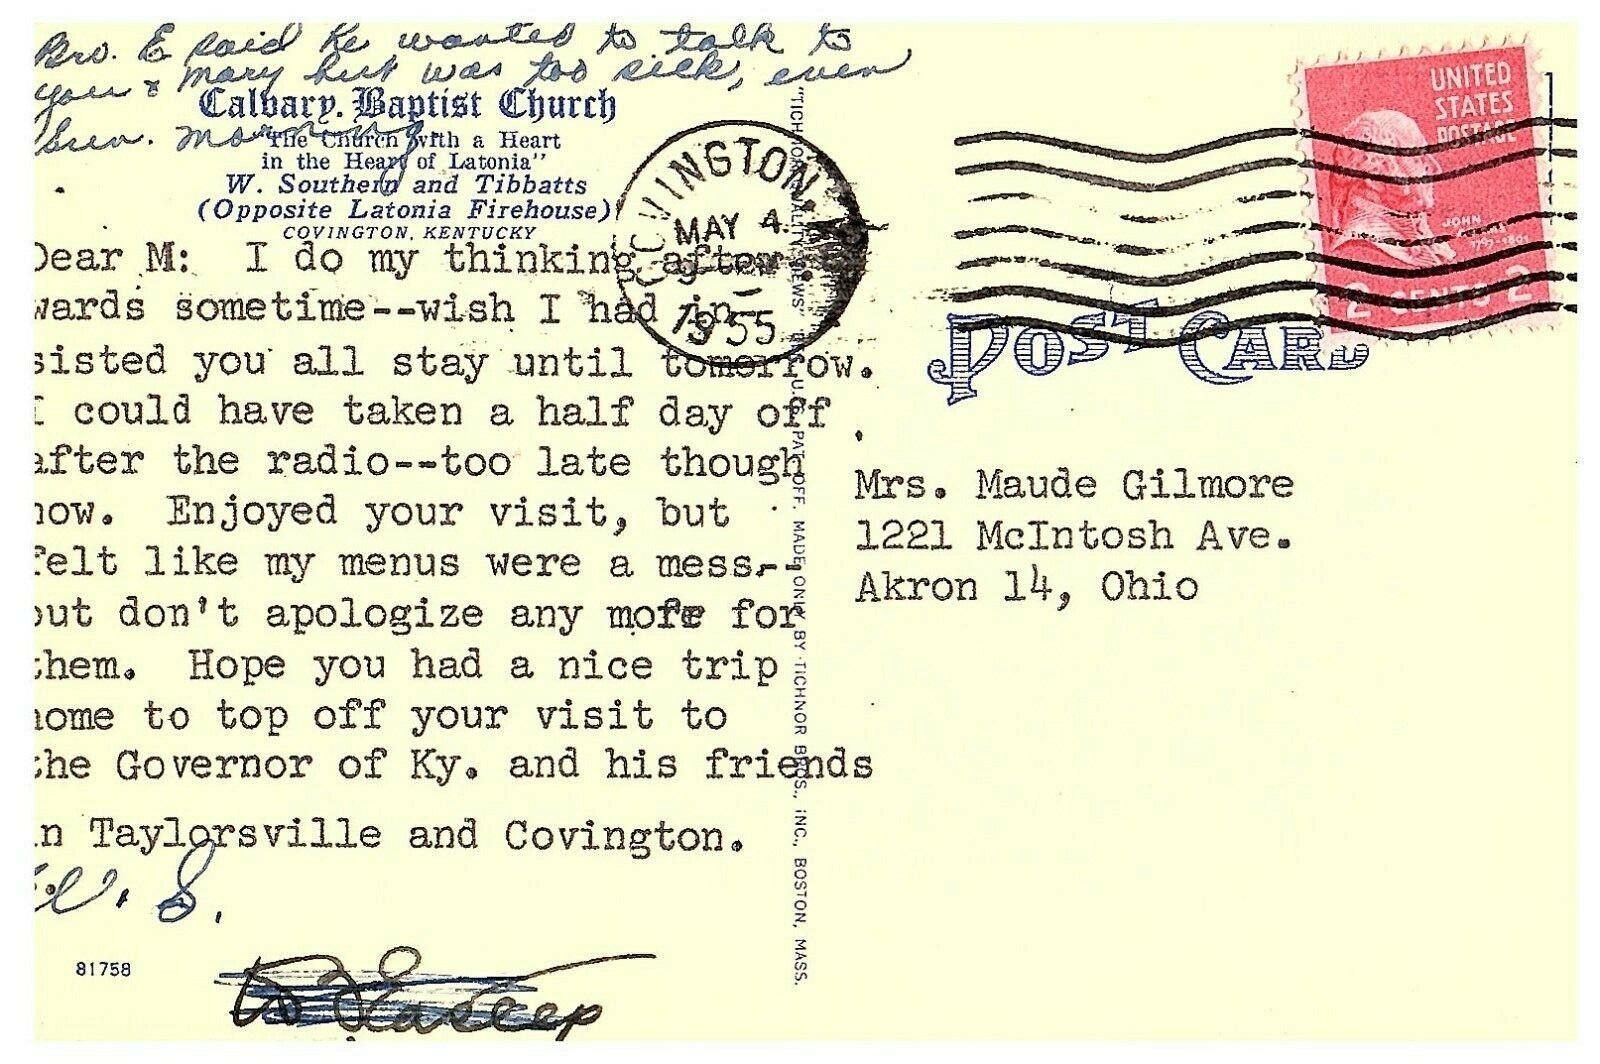 Bro. E said he wanted to talk to
you & Mary but was too sick, even
Sun. Morning.
Calvary Baptist Church
"The Church with a Heart
in the Heart of Latonia"
W. Southern and Tibbatts
(Opposite Latonia Firehouse)
COVINGTON, KENTUCKY
Dear M: I do my thinking after-
wards sometime--wish I had in-
sisted you all stay until tomorrow.
I could have taken a half day off
after the radio--too late though
now. Enjoyed your visit, but
felt like my menus were a mess--
but don't apologize any more for
them. Hope you had a nice trip
home to top off your visit to
the Governor of Ky. and his friends
in Taylorsville and Covington.
S.
81758
COVINGTON
MAY 4
1955
"TICHNOR QUALITY VIEWS" REG. U.S. PAT. OFF. MADE ONLY BY TICHNOR BROS., INC., BOSTON, MASS.
UNITED
STATES
POSTAGE
JOHN
1797-1801
2 CENTS 2
POST CARD
Mrs. Maude Gilmore
1221 McIntosh Ave.
Akron 14, Ohio